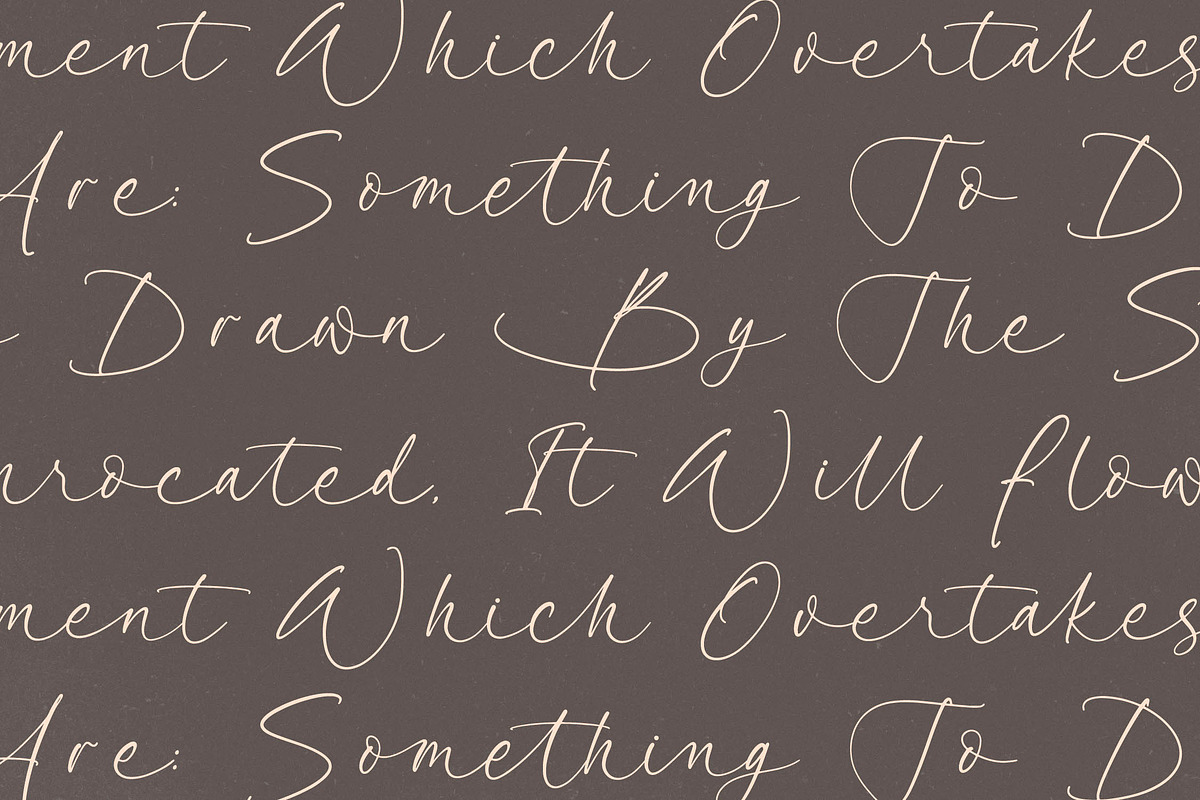 ment Which Overtakes
Are: Something To D
Drawn By The S
nrocated, It Will flow
ment Which Overtakes
Are: Something To D